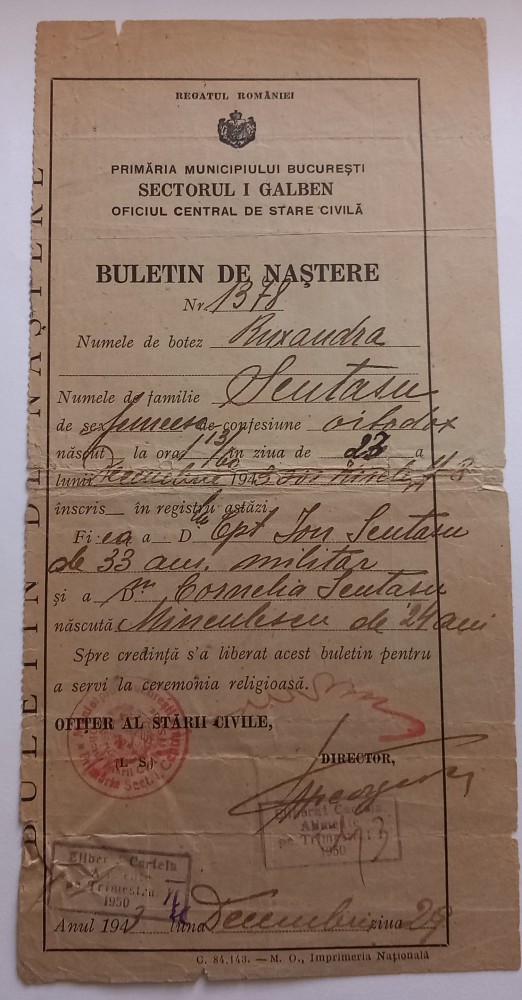 REGATUL ROMÂNIEI
PRIMĂRIA MUNICIPIULUI BUCUREȘTI
SECTORUL I GALBEN
OFICIUL CENTRAL DE STARE CIVILĂ
BULETIN DE NAȘTERE
BULETIN DE NAȘTERE
Nr. 1378
Numele de botez Ruxandra
Numele de familie Scutasu
de sex femeesc de confesiune ortodox
născut la ora 1 13/60 în ziua de 23 a
lunii Decembrie 1943
înscris în registru astăzi
Fiica a D-lu Cpt Ion Scutasu
de 33 ani, militar
și a D-nei Cornelia Scutasu
născută Minculescu de 24 ani
Spre credință s'a liberat acest buletin pentru
a servi la ceremonia religioasă.
OFIȚER AL STĂRII CIVILE,
(L. S.)
DIRECTOR,
Eliberat Cartela
pe Trimestru
1950
Eliberat Cartela
pe Trimestru
1950
Anul 1943 luna Decembrie ziua 29
C. 84.143. — M. O., Imprimeria Națională